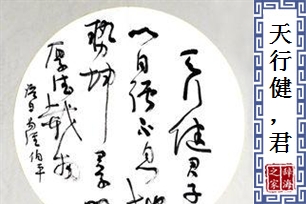 天行健君子
以自强不息地
势坤君
厚德载物
天行健，君
辞海
之家